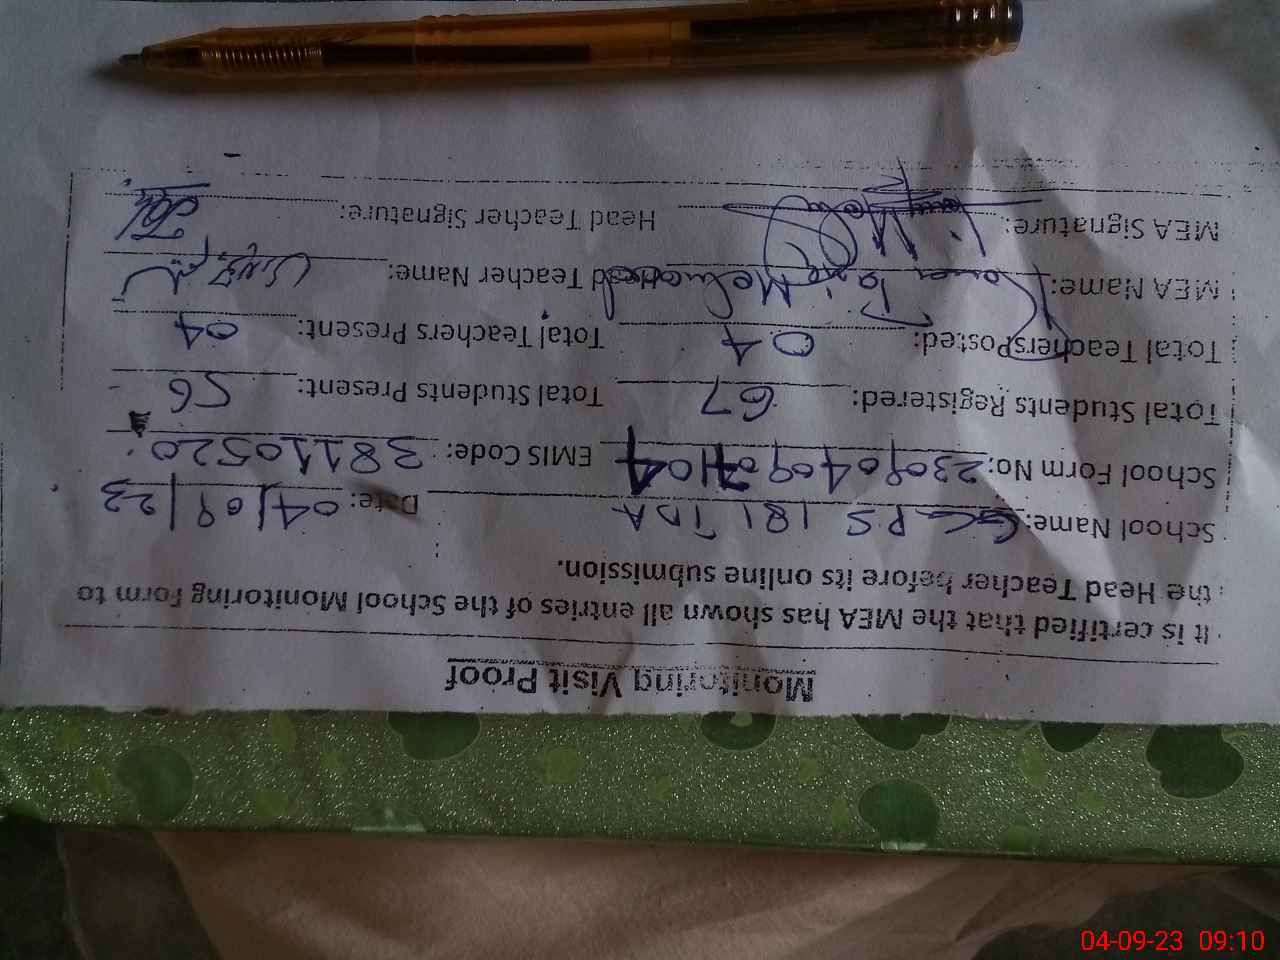 Monitoring Visit Proof
It is certified that the MEA has shown all entries of the School Monitoring Form to
the Head Teacher before its online submission.
School Name: GGPS 181 TDA Date: 04/09/23
School Form No: 2309040907104 EMIS Code: 38110520
Total Students Registered: 67 Total Students Present: 56
Total Teachers Posted: 04 Total Teachers Present: 04
MEA Name: Mehmood Head Teacher Name:
MEA Signature: Head Teacher Signature:
04-09-23 09:10